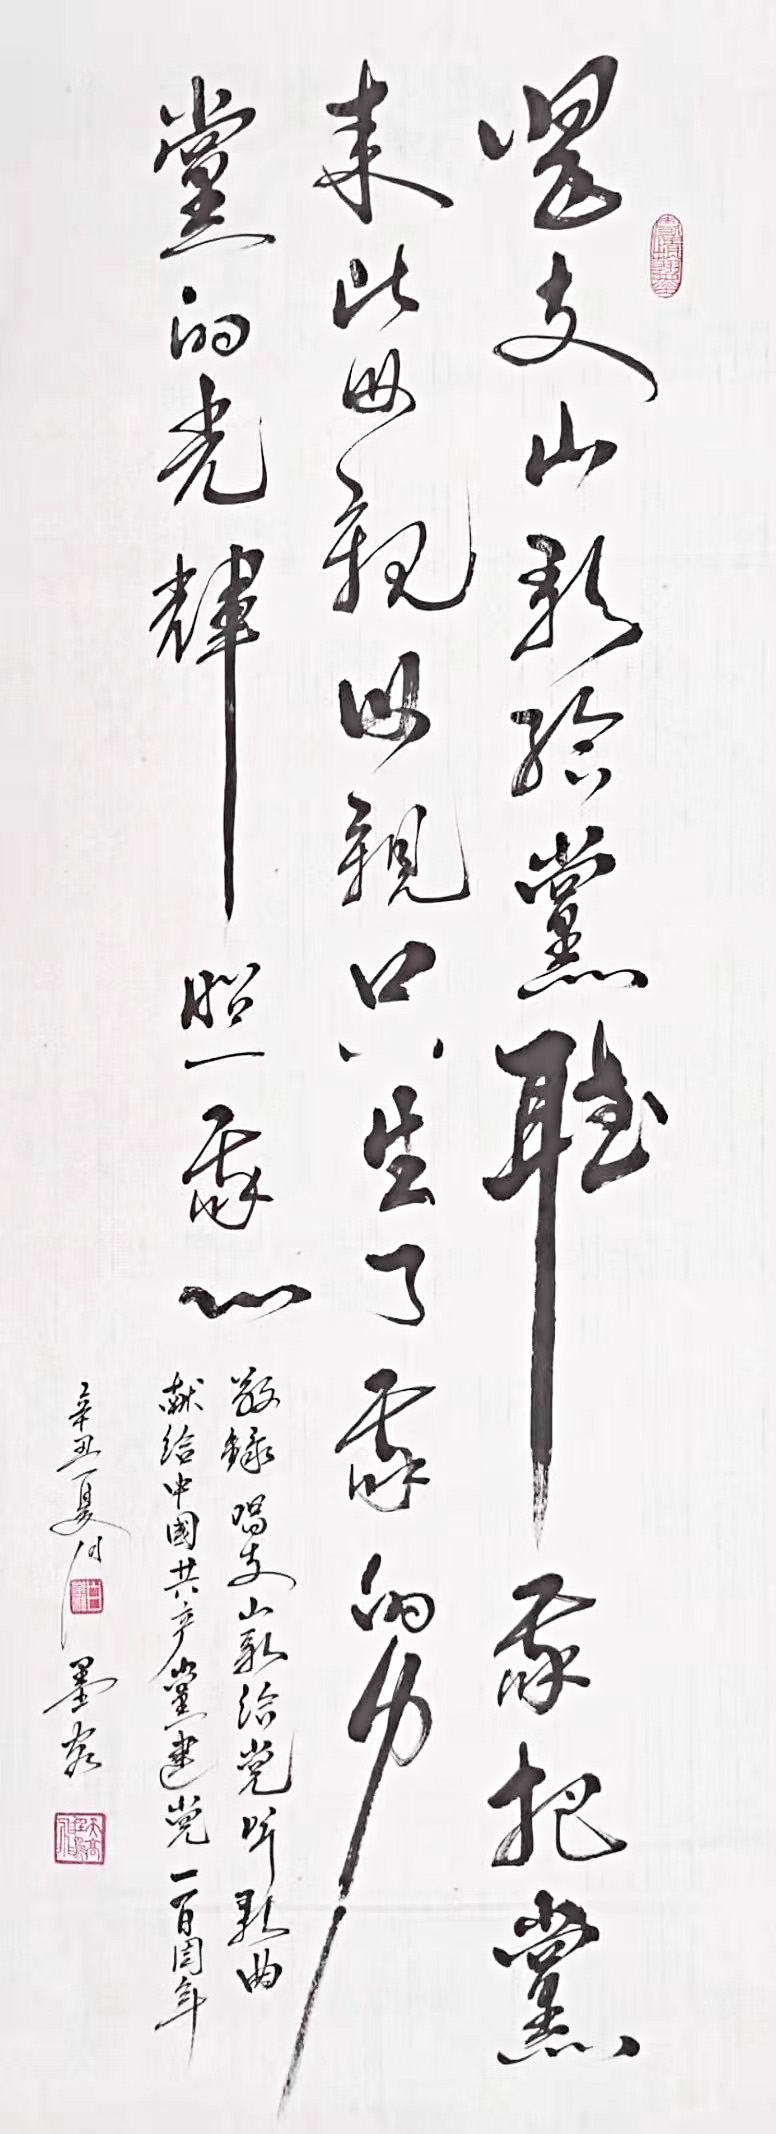 唱支山歌给黨聽我把黨
来比母親母親只生了我的身
黨的光輝照我心
敬録唱支山歌给党听歌曲
献给中國共产黨建党一百周年
辛丑夏月墨